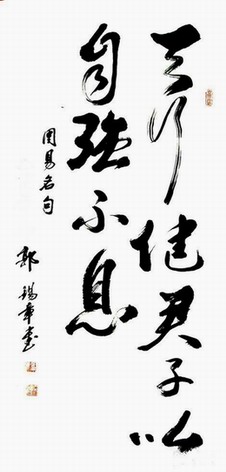 天行健君子以
自强不息
周易名句
郭锡章书